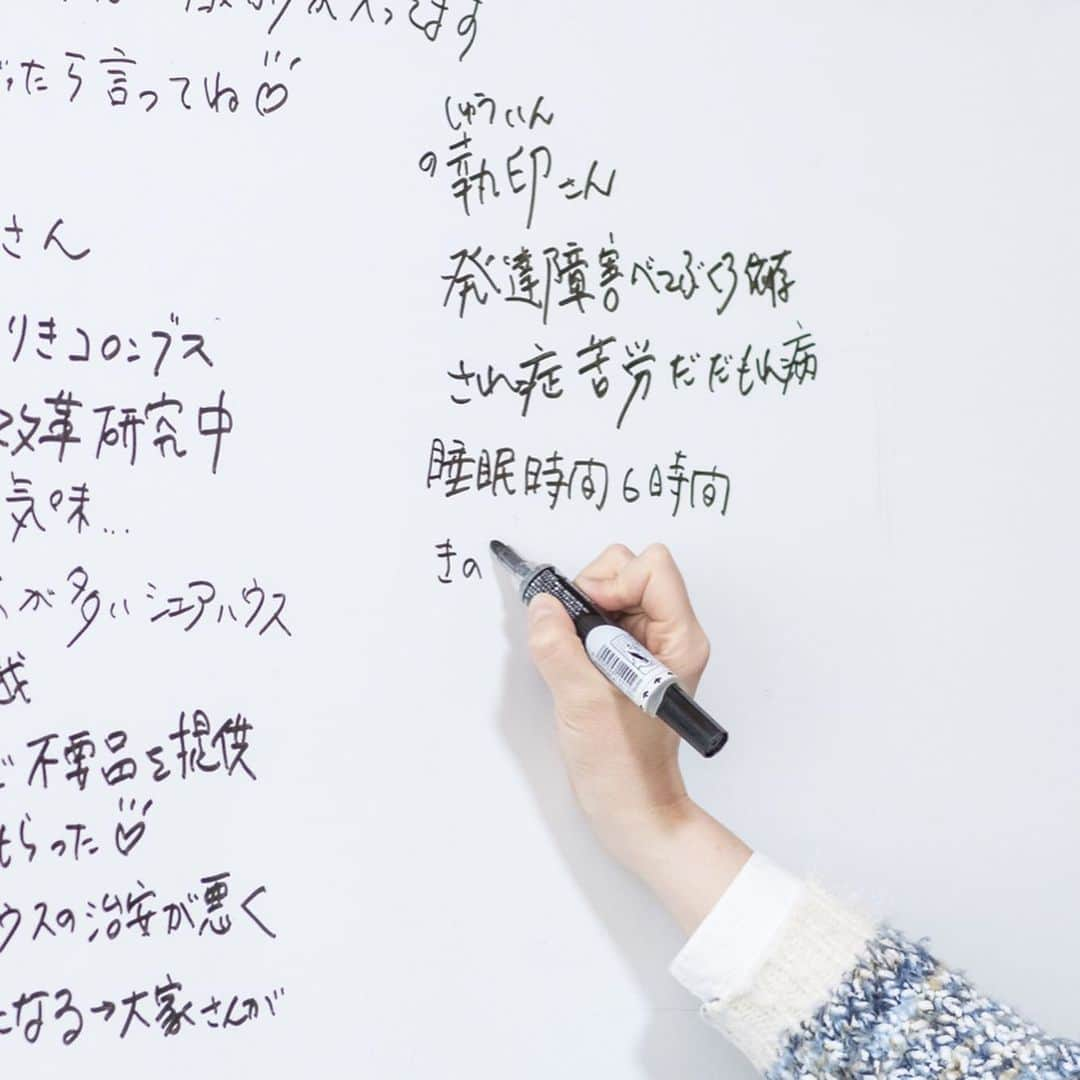 ってます
ったら言ってね♡
さん
りきコロンブス
改革研究中
気味…
が多いシェアハウス
不要品を提供
もらった♡
ウスの治安が悪く
になる→大家さんが
しゅういん
執印さん
発達障害べてぶくろ依存
され症 苦労だだもれ病
睡眠時間6時間
きの